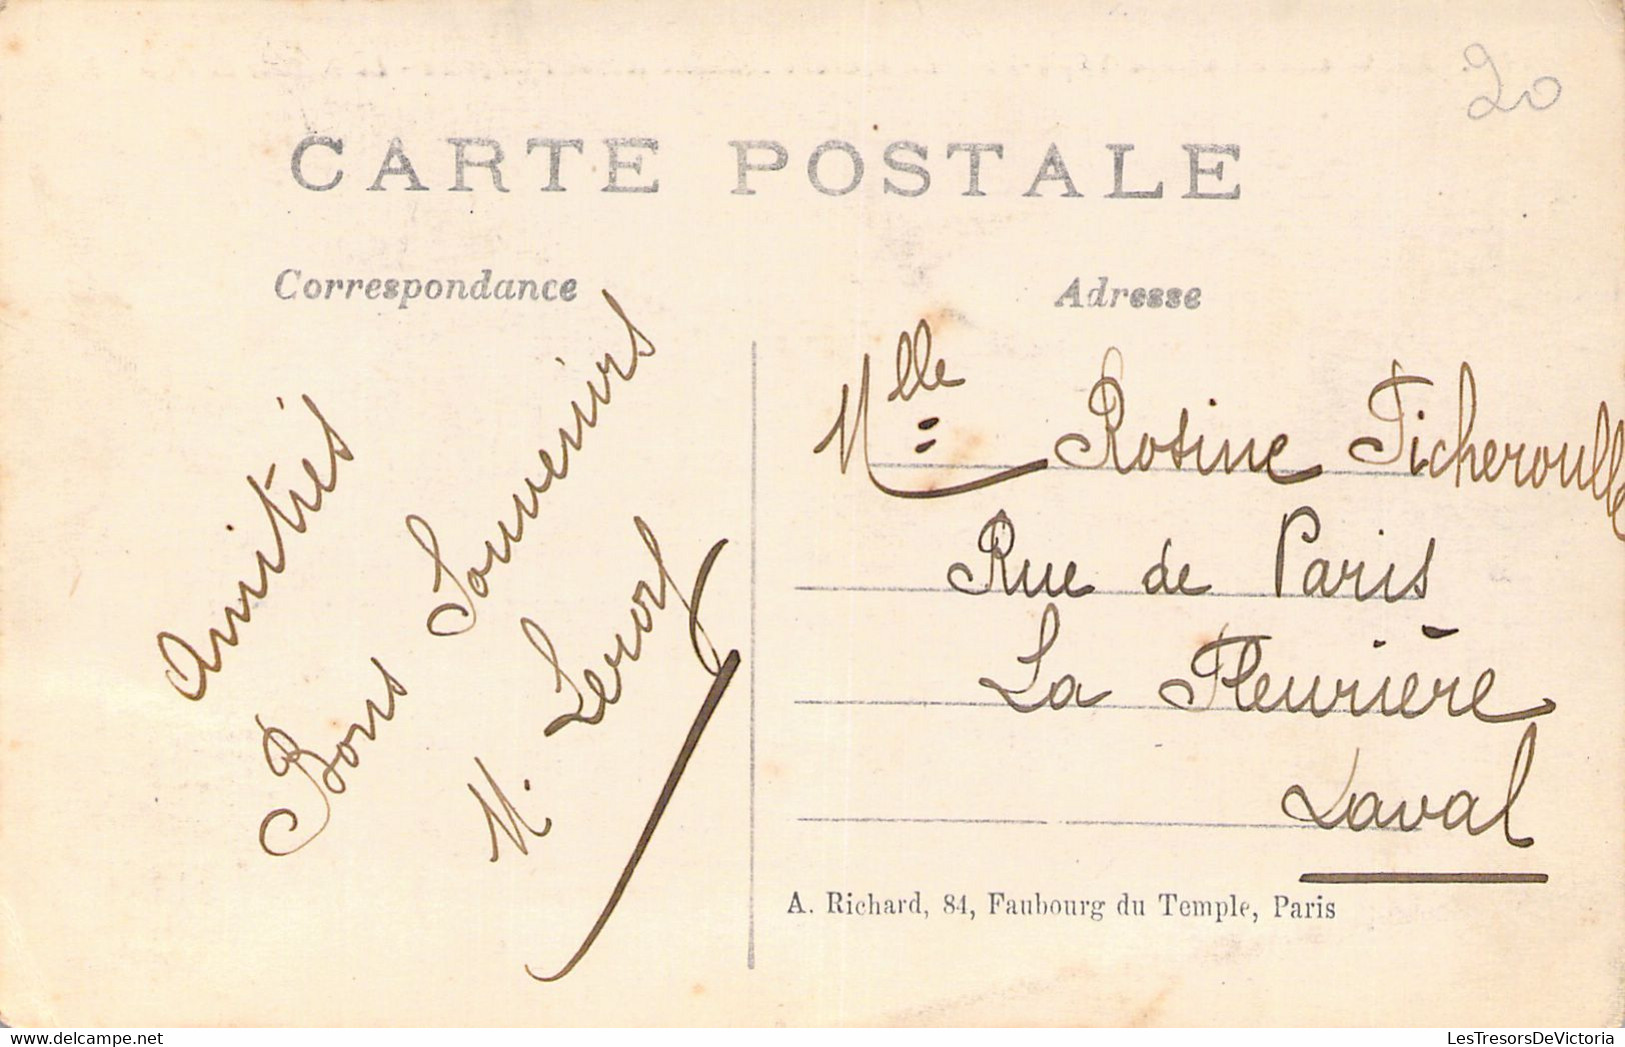 20
CARTE POSTALE
Correspondance
Adresse
Amitiés
Bons Souvenirs
M. Leroy
Mlle Rosine Ficheroulle
Rue de Paris
La Fleurière
Laval
A. Richard, 84, Faubourg du Temple, Paris
LesTresorsDeVictoria